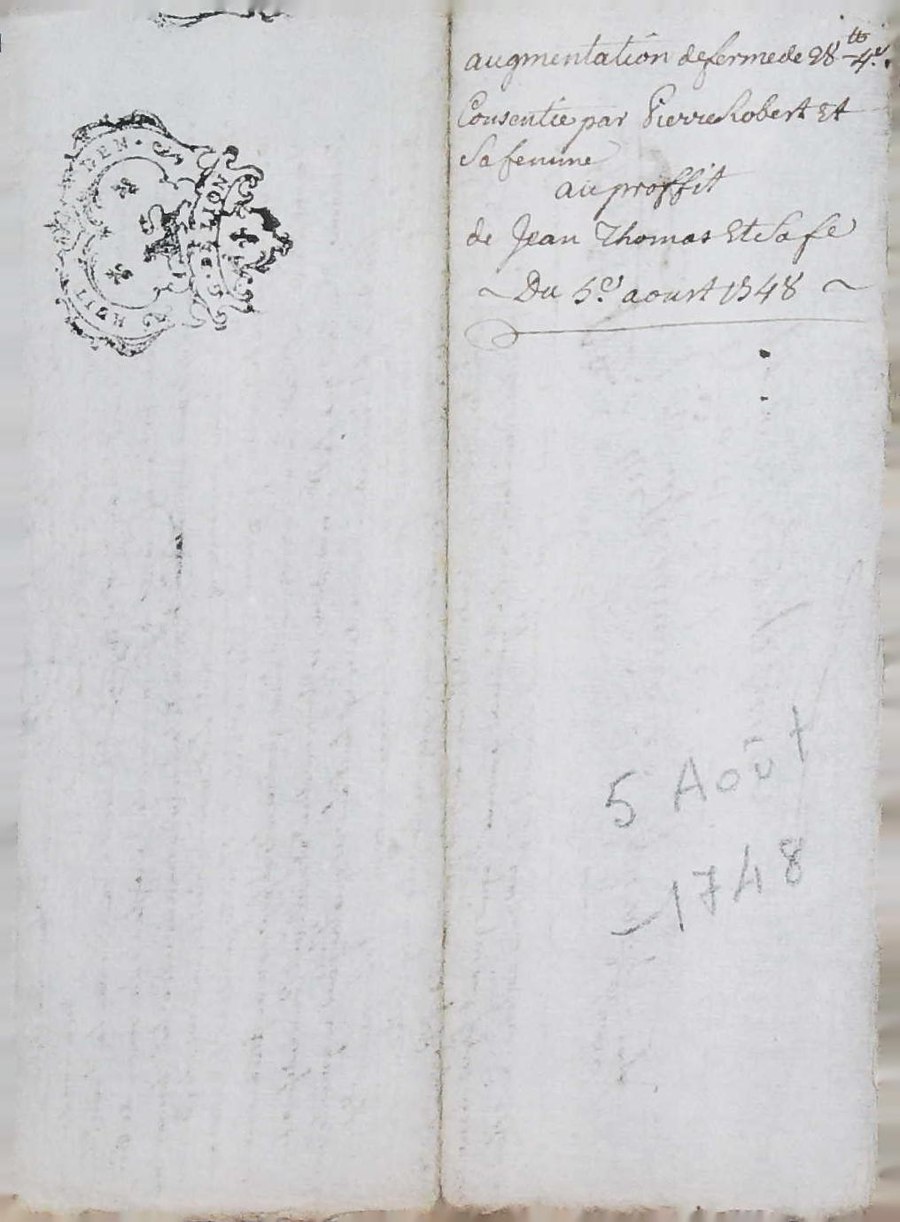 HUIT DEN.
G. DE LION
augmentation de ferme de 28tt 4s.
Consentie par Pierre Robert Et
Sa femme
au proffit
de Jean Thomas Et Sa fe
~ Du 5e aoust 1748 ~
5 Août
1748